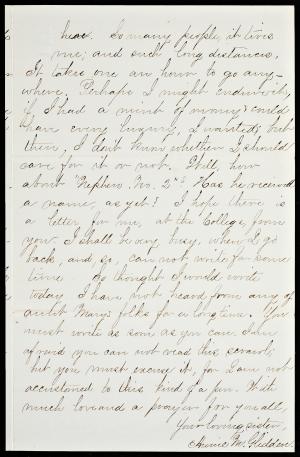 hear. So many people, it tires
me; and such long distances,
It takes one an hour to go any-
where. Perhaps I might endure it,
if I had a mint of money & could
have every luxury, I wanted; but
then, I don't know whether I should
care for it or not. Well, how
about "Nephew No. 2"? Has he received
a name, as yet? I hope there is
a letter for me, at the College, from
you. I shall be very busy, when I go
back, and so, can not, write for some
time. So thought I would write
today. I have not heard from any of
aunt Mary's folks for a long time. You
must write as soon as you can. I am
afraid you can not read this scrawl;
but you must excuse it, for I am not
accustomed to this kind of a pen. With
much love and a prayer for you all,
Your loving sister,
Annie M. Glidden.